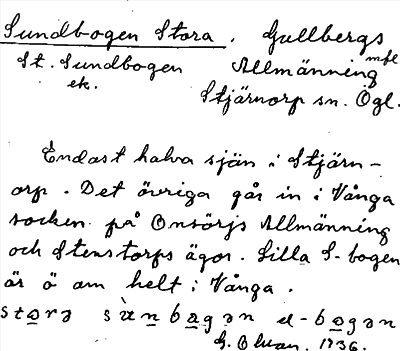 Sundbogen Stora. Gullbergs
St. Sundbogen Allmänning mfl
ek. Stjärnorp sn. Ögl.
Endast halva sjön i Stjärn-
orp. Det övriga går in i Vånga
socken på Onsörjs Allmänning
och Stenstorps ägor. Lilla S-bogen
är ö am helt i Vånga.
G. Olsson. 1936.